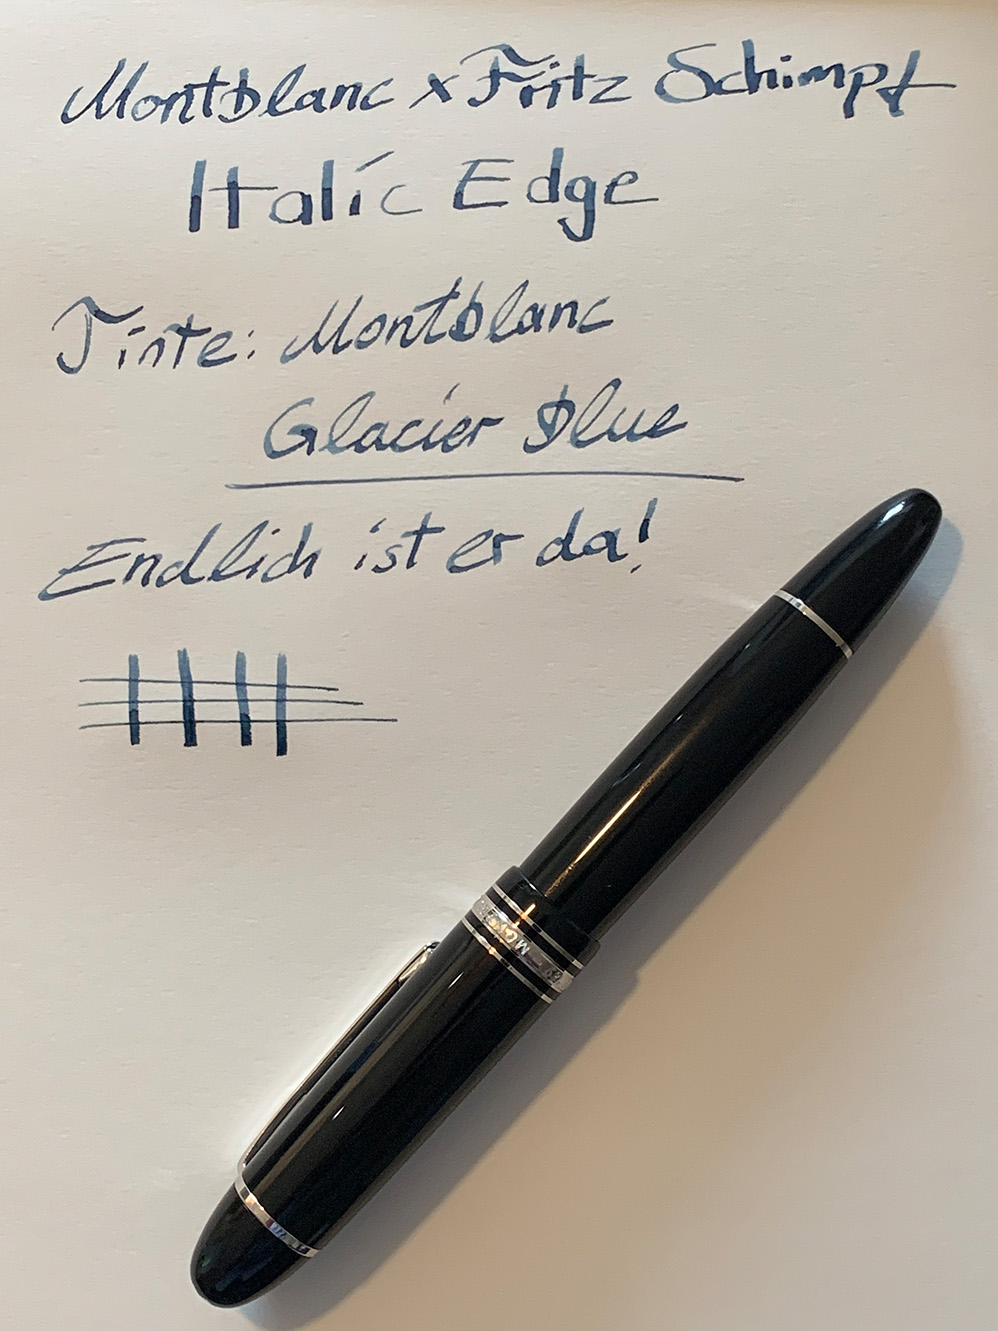 Montblanc x Fritz Schimpf
Italic Edge
Tinte: Montblanc
Glacier Blue
Endlich ist er da!